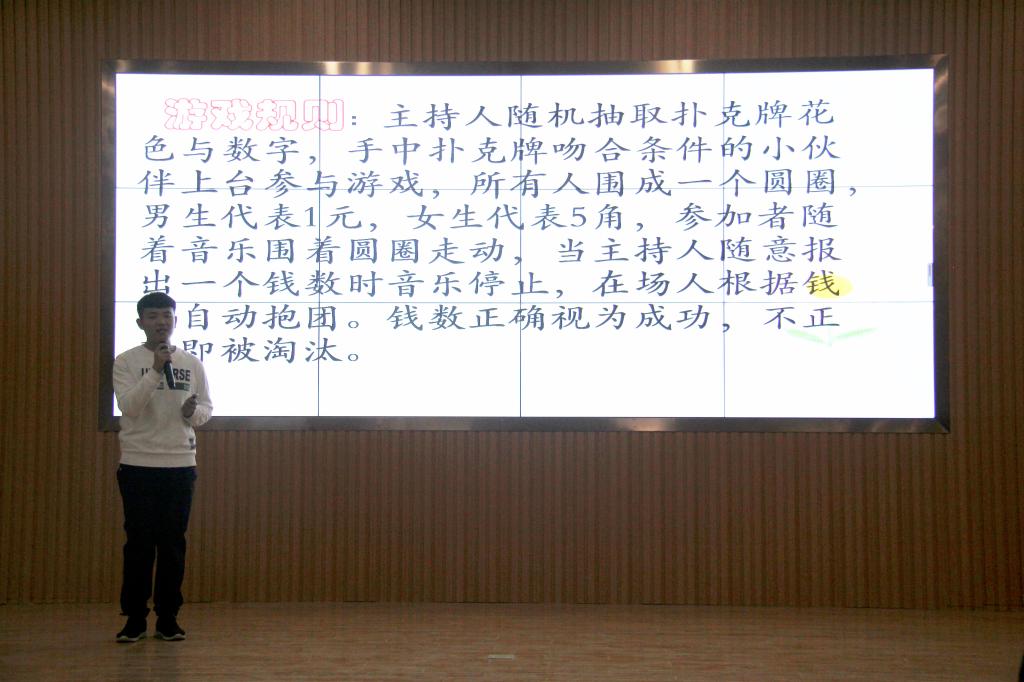 游戏规则：主持人随机抽取扑克牌花
色与数字，手中扑克牌吻合条件的小伙
伴上台参与游戏，所有人围成一个圆圈，
男生代表1元，女生代表5角，参加者随
着音乐围着圆圈走动，当主持人随意报
出一个钱数时音乐停止，在场人根据钱
自动抱团。钱数正确视为成功，不正
即被淘汰。